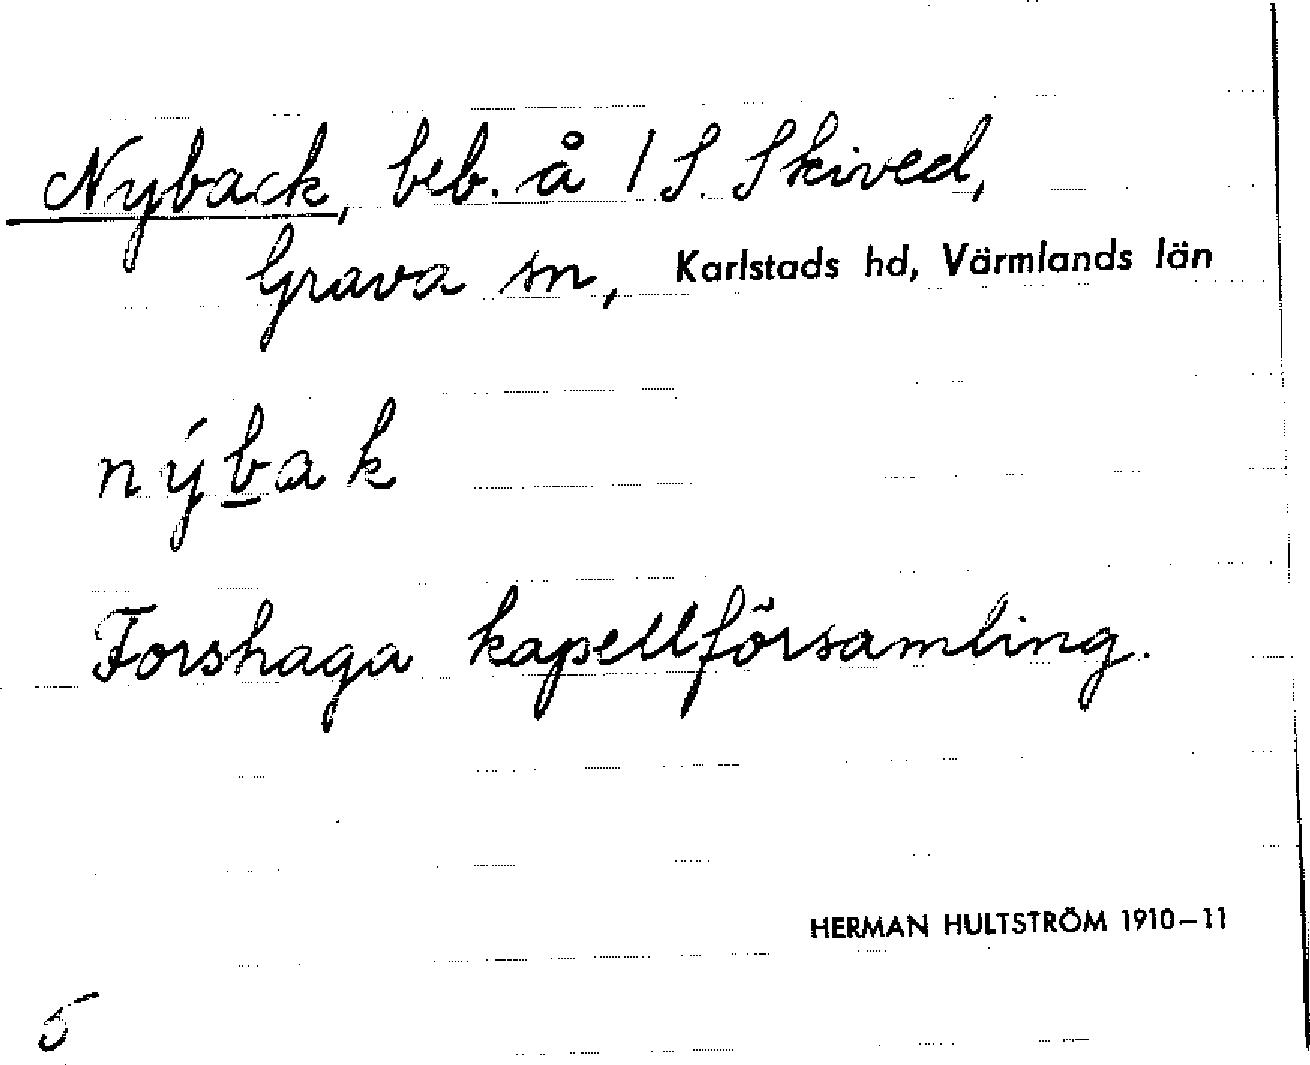 Nyback, beb. å 1 S. Skived,
Grava sn, Karlstads hd, Värmlands län
nýbak
Forshaga kapellförsamling.
HERMAN HULTSTRÖM 1910–11
5